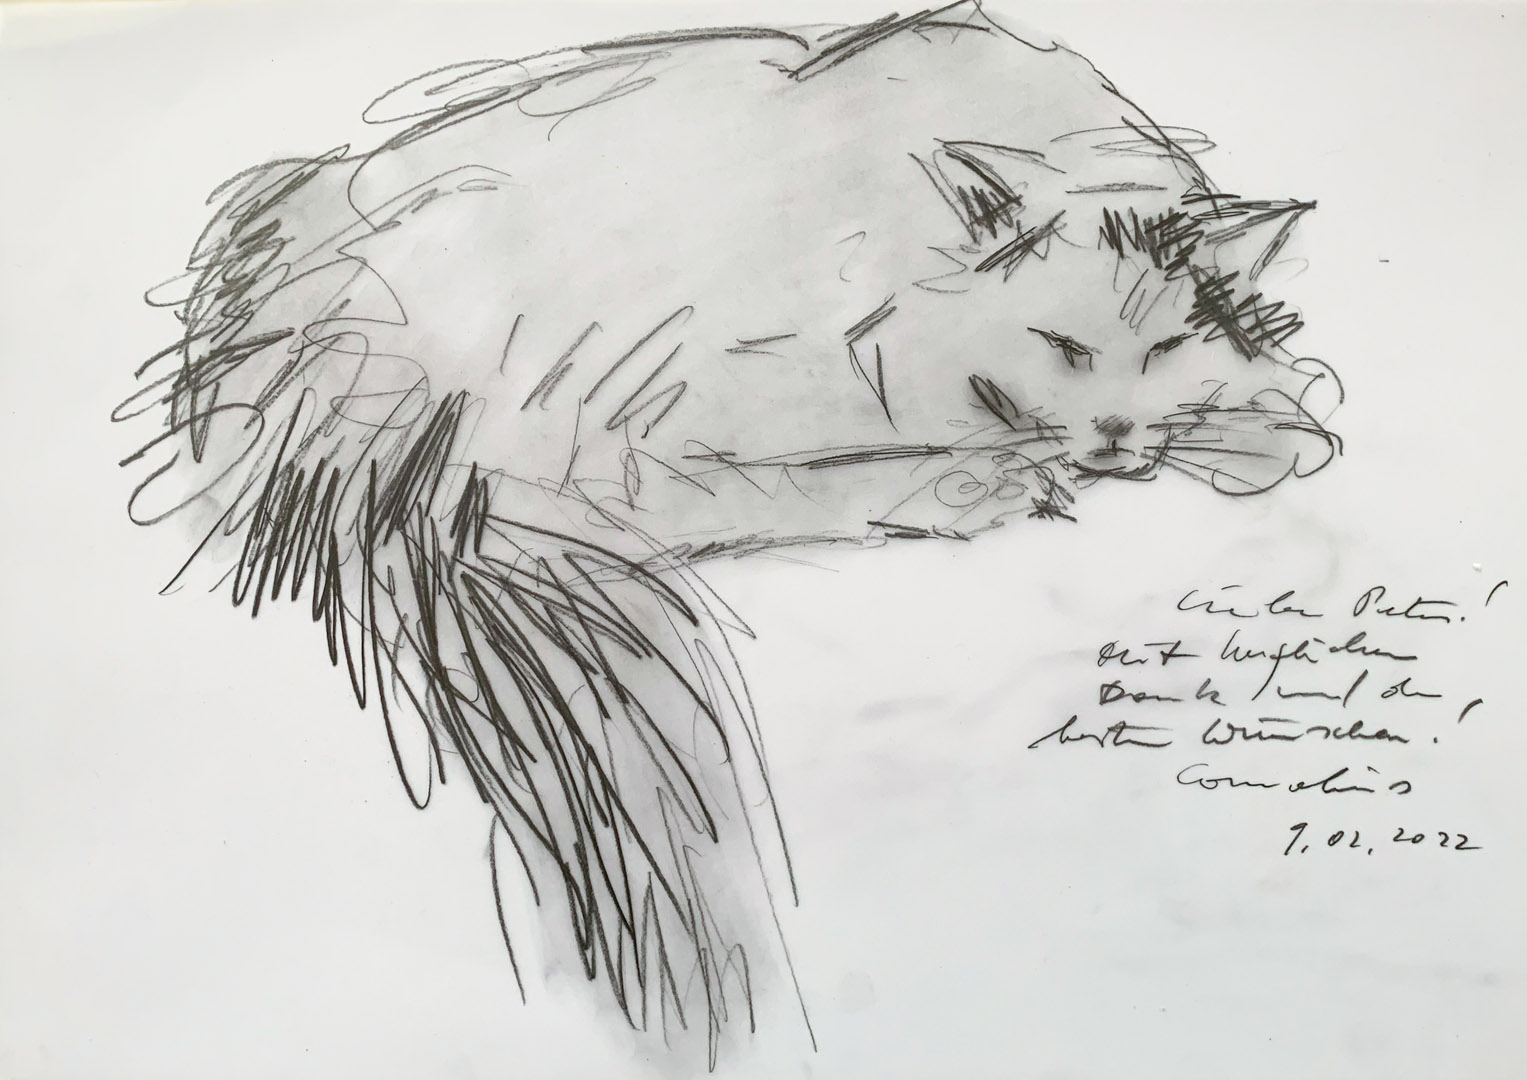 Lieber Peter!
Mit herzlichem
Dank und den
besten Wünschen!
Cornelius
9.02.2022